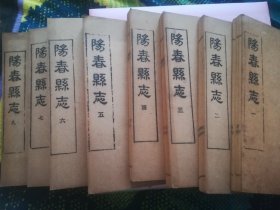 陽春縣志 一
陽春縣志 二
陽春縣志 三
陽春縣志 四
陽春縣志 五
陽春縣志 六
陽春縣志 七
陽春縣志 九